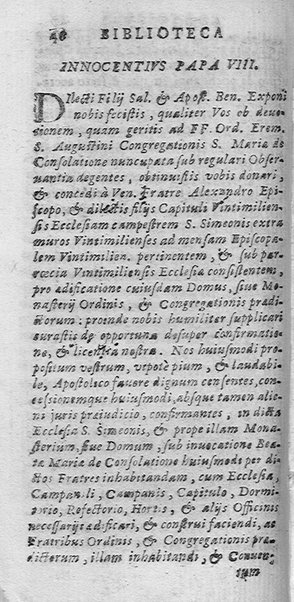 40 BIBLIOTECA
INNOCENTIVS PAPA VIII.
DIlecti Filij Sal. & Apost. Ben. Exponi
nobis fecistis, qualiter Vos ob deuo-
tionem, quam geritis ad FF. Ord. Erem.
S. Augustini Congregationis S. Maria de
Consolatione nuncupata sub regulari Obser
uantia degentes, obtinuistis vobis donari,
& concedi à Ven. Fratre Alexandro Epi-
scopo, & dilectis filijs Capituli Vintimilien-
sis Ecclesiam campestrem S. Simeonis extra
muros Vintimilienses ad mensam Episcopa-
lem Vintimilien. pertinentem, & sub par-
rœcia Vintimiliensis Ecclesia consistentem,
pro adificatione cuiusdam Domus, siue Mo-
nasterij Ordinis, & Congregationis pradi-
ctorum: proinde nobis humiliter supplicari
curastis de opportuna desuper confirmatio-
ne, & licentia nostra. Nos huiusmodi pro-
positum vestrum, vtpotè pium, & laudabi-
le, Apostolico fauore dignum censentes, con-
cessionemque huiusmodi, absque tamen alie-
ni juris praiudicio, confirmantes, in dicta
Ecclesia S. Simeonis, & prope illam Mona-
sterium, siue Domum, sub inuocatione Bea-
ta Maria de Consolatione huiusmodi per di-
ctos Fratres inhabitandam, cum Ecclesia,
Campanili, Campanis, Capitulo, Dormi-
torio, Refectorio, Hortis, & alijs Officinis
necessarijs adificari, & construi faciendi, ac
Fratribus Ordinis, & Congregationis pra-
dictorum, illam inhabitandi, & Conuen-
tum